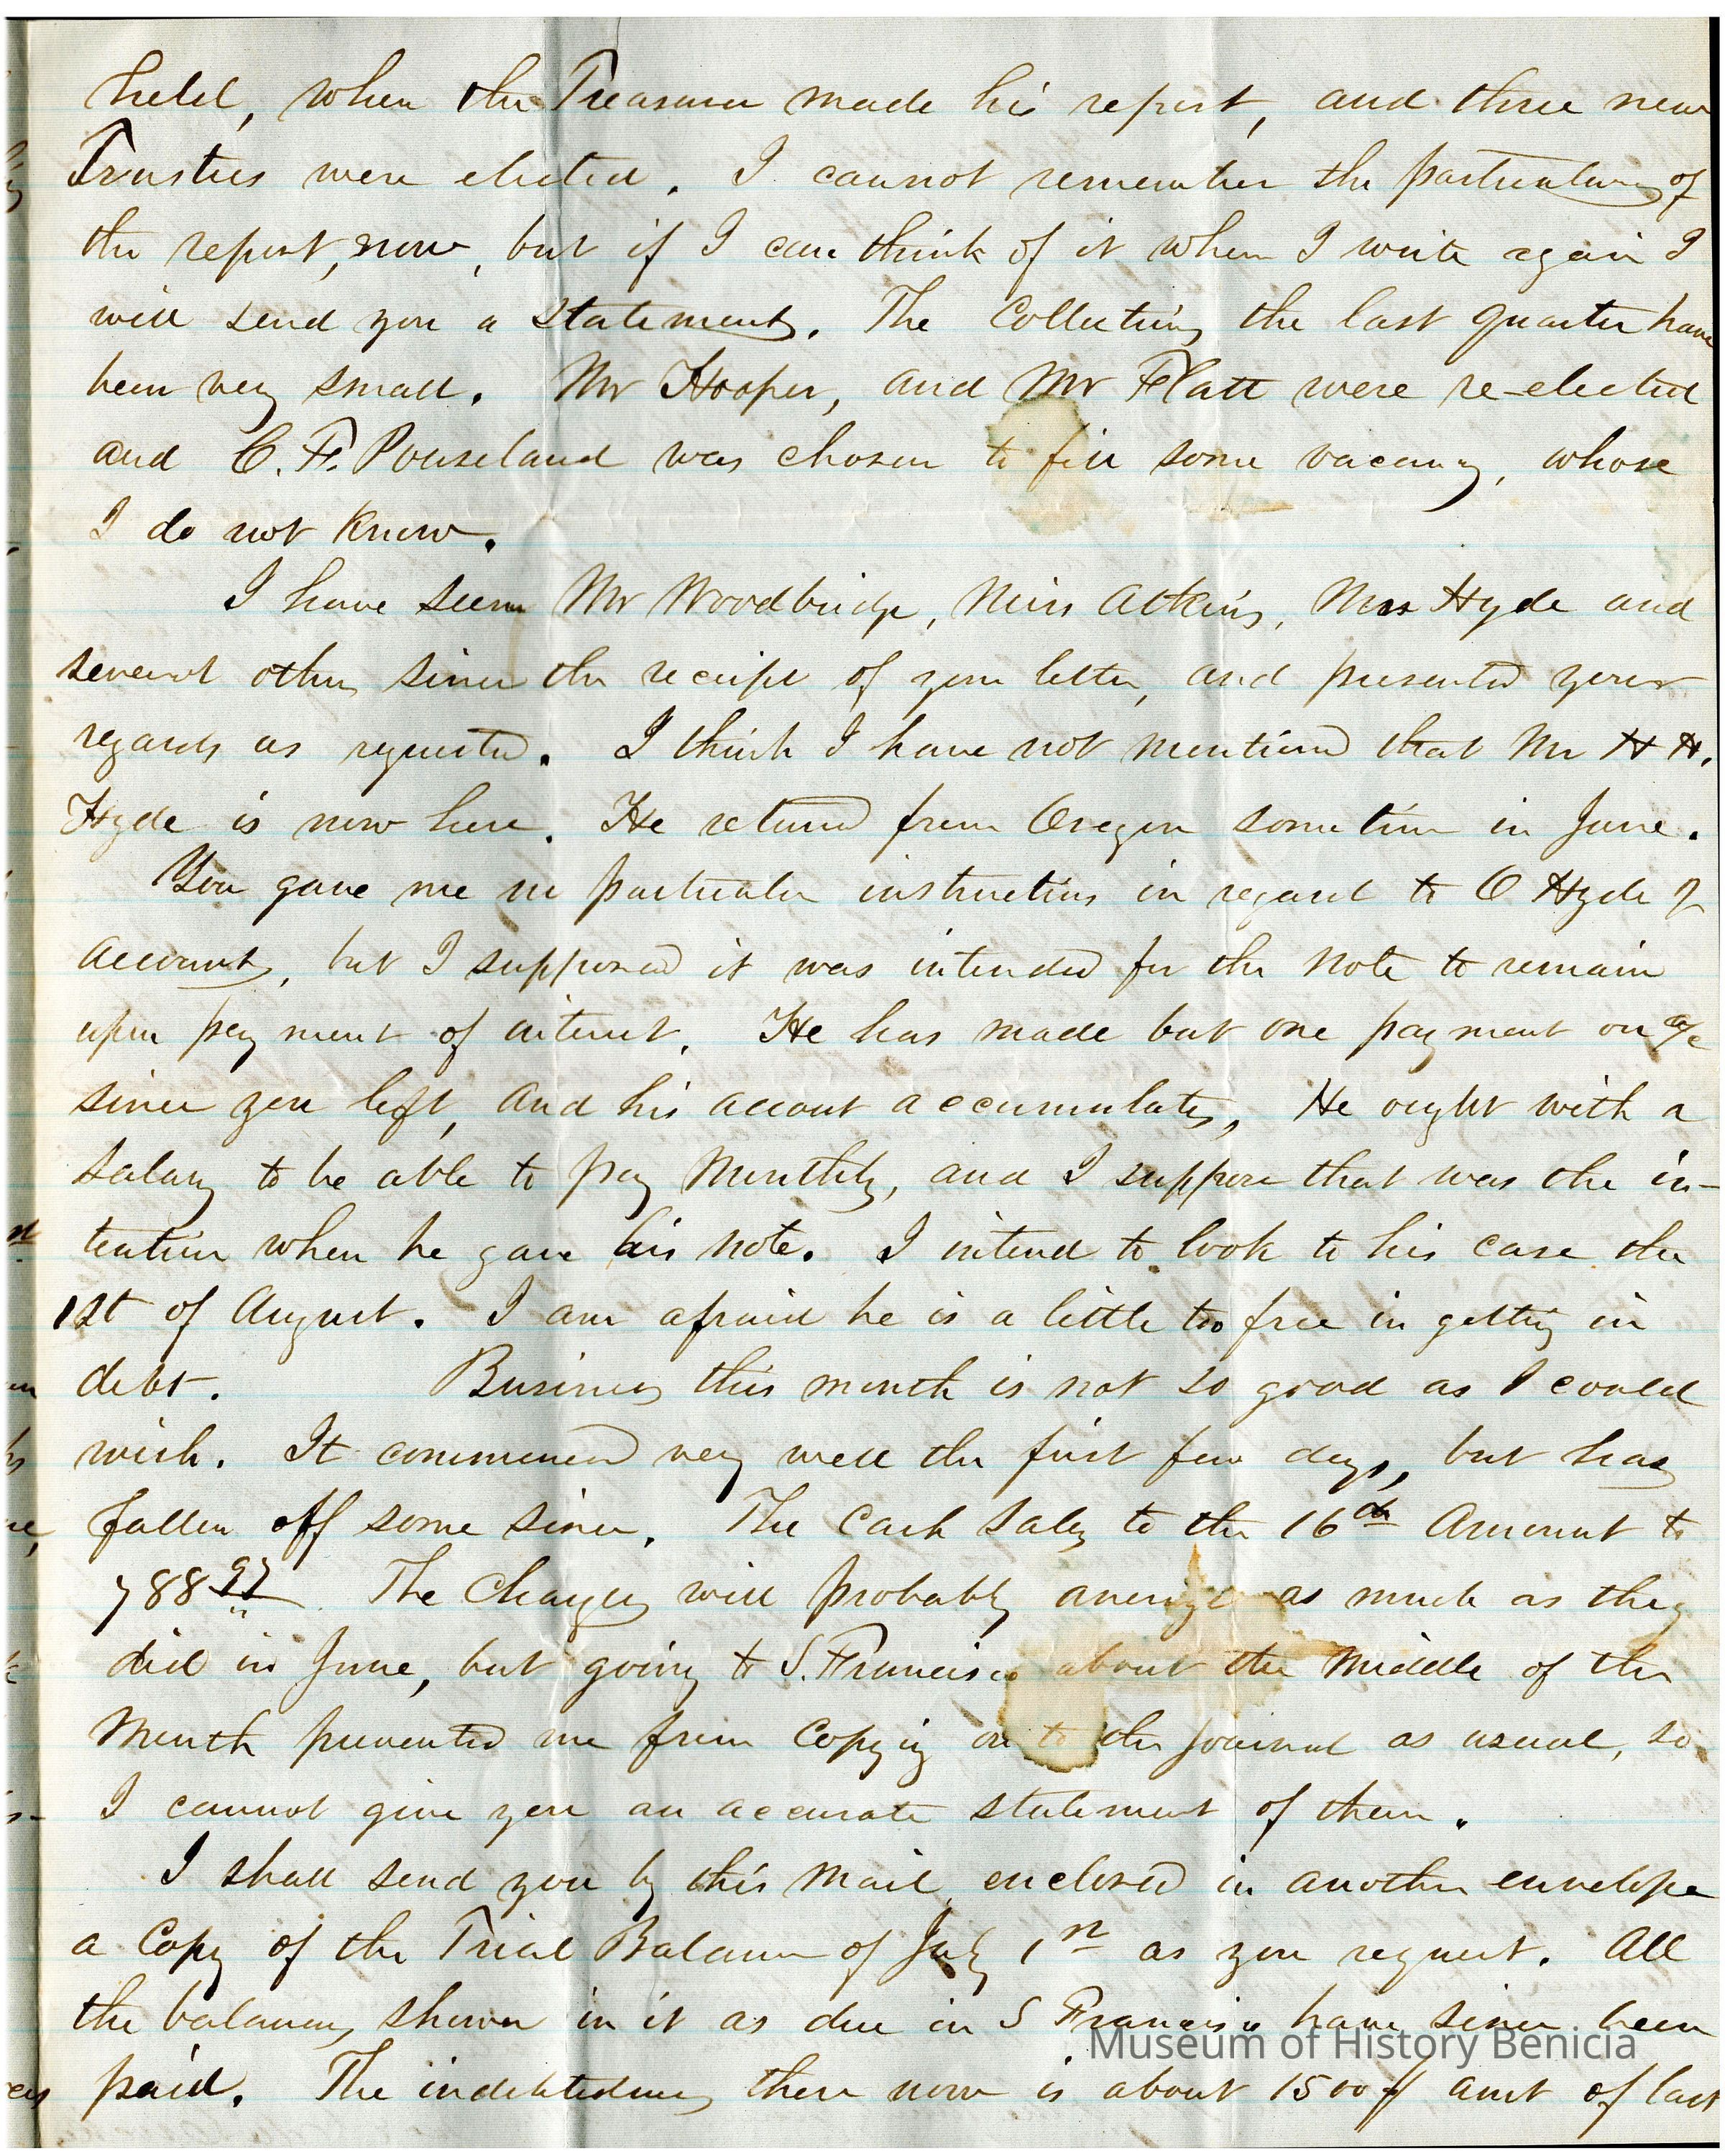 held, when the Treasurer made his report, and three new
Trustees were elected. I cannot remember the particulars of
the report, now, but if I can think of it when I write again I
will send you a statement. The Collections the last quarter have
been very small. Mr Hooper, and Mr Flatt were re-elected
and C. F. Pouseland was chosen to fill some vacancy, whose
I do not know.
I have seen Mr Woodbridge, Miss Atkins, Mrs Hyde and
several others since the receipt of your letter, and presented your
regards as requested. I think I have not mentioned that Mr H H.
Hyde is now here. He returned from Oregon some time in June.
You gave me no particular instructions in regard to O Hyde
account, but I supposed it was intended for the note to remain
upon payment of interest. He has made but one payment on a/c
since you left, and his accout accumulates, He ought with a
salary to be able to pay Monthly, and I suppose that was the in-
tention when he gave his note. I intend to look to his case the
1st of August. I am afraid he is a little too free in getting in
debt. Business this month is not so good as I could
wish. It commenced very well the first few days, but has
fallen off some since. The Cash Sales to the 16th Amount to
788 97 The Charges will probably average as much as they
did in June, but going to S. Francisco about the Middle of the
Month prevented me from Copying on to the Journal as usual, so
I cannot give you an accurate statement of them.
I shall send you by this Mail enclosed in another envelope
a Copy of the Trial Balance of July 1st as you request. All
the balances shown in it as due in S Francisco have since been
paid. The indebtedness there now is about 1500 amt of last
Museum of History Benicia